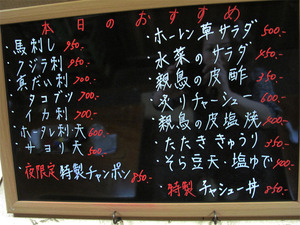 本日のおすすめ
・馬刺し 950.-
・クジラ刺 950.-
・真だい刺 700-
・タコブツ 700-
・イカ刺 700-
・ホータレ刺・天 600
・サヨリ天 500-
・夜限定 特製チャンポン 850-
・ホーレン草サラダ 500-
・水菜のサラダ 450-
・親鳥の皮酢 350-
・炙りチャーシュー 600
・親鳥の皮塩焼 400-
・たたききゅうり 350-
・そら豆天・塩ゆで 400-
・特製 チャシュー丼 850-